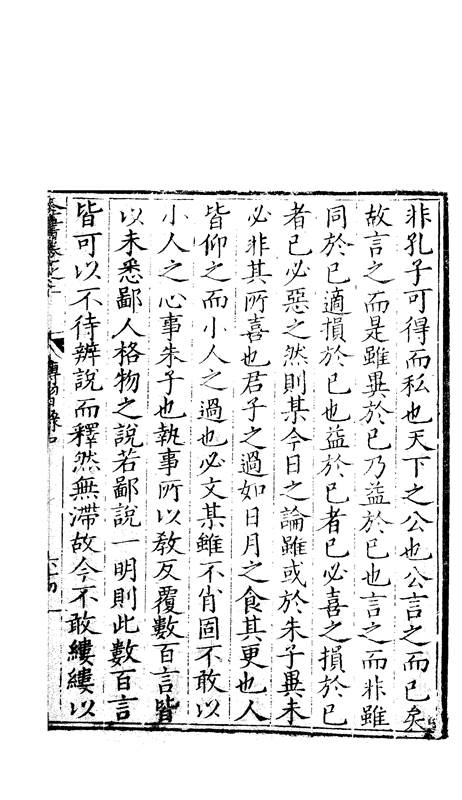 非孔子可得而私也天下之公也公言之而已矣
故言之而是雖異於已乃益於已也言之而非雖
同於已適損於已也益於已者已必喜之損於已
者已必惡之然則某今日之論雖或於朱子異未
必非其所喜也君子之過如日月之食其更也人
皆仰之而小人之過也必文某雖不肖固不敢以
小人之心事朱子也執事所以敎反覆數百言皆
以未悉鄙人格物之說若鄙說一明則此數百言
皆可以不待辨說而釋然無滯故今不敢縷縷以
傳習錄